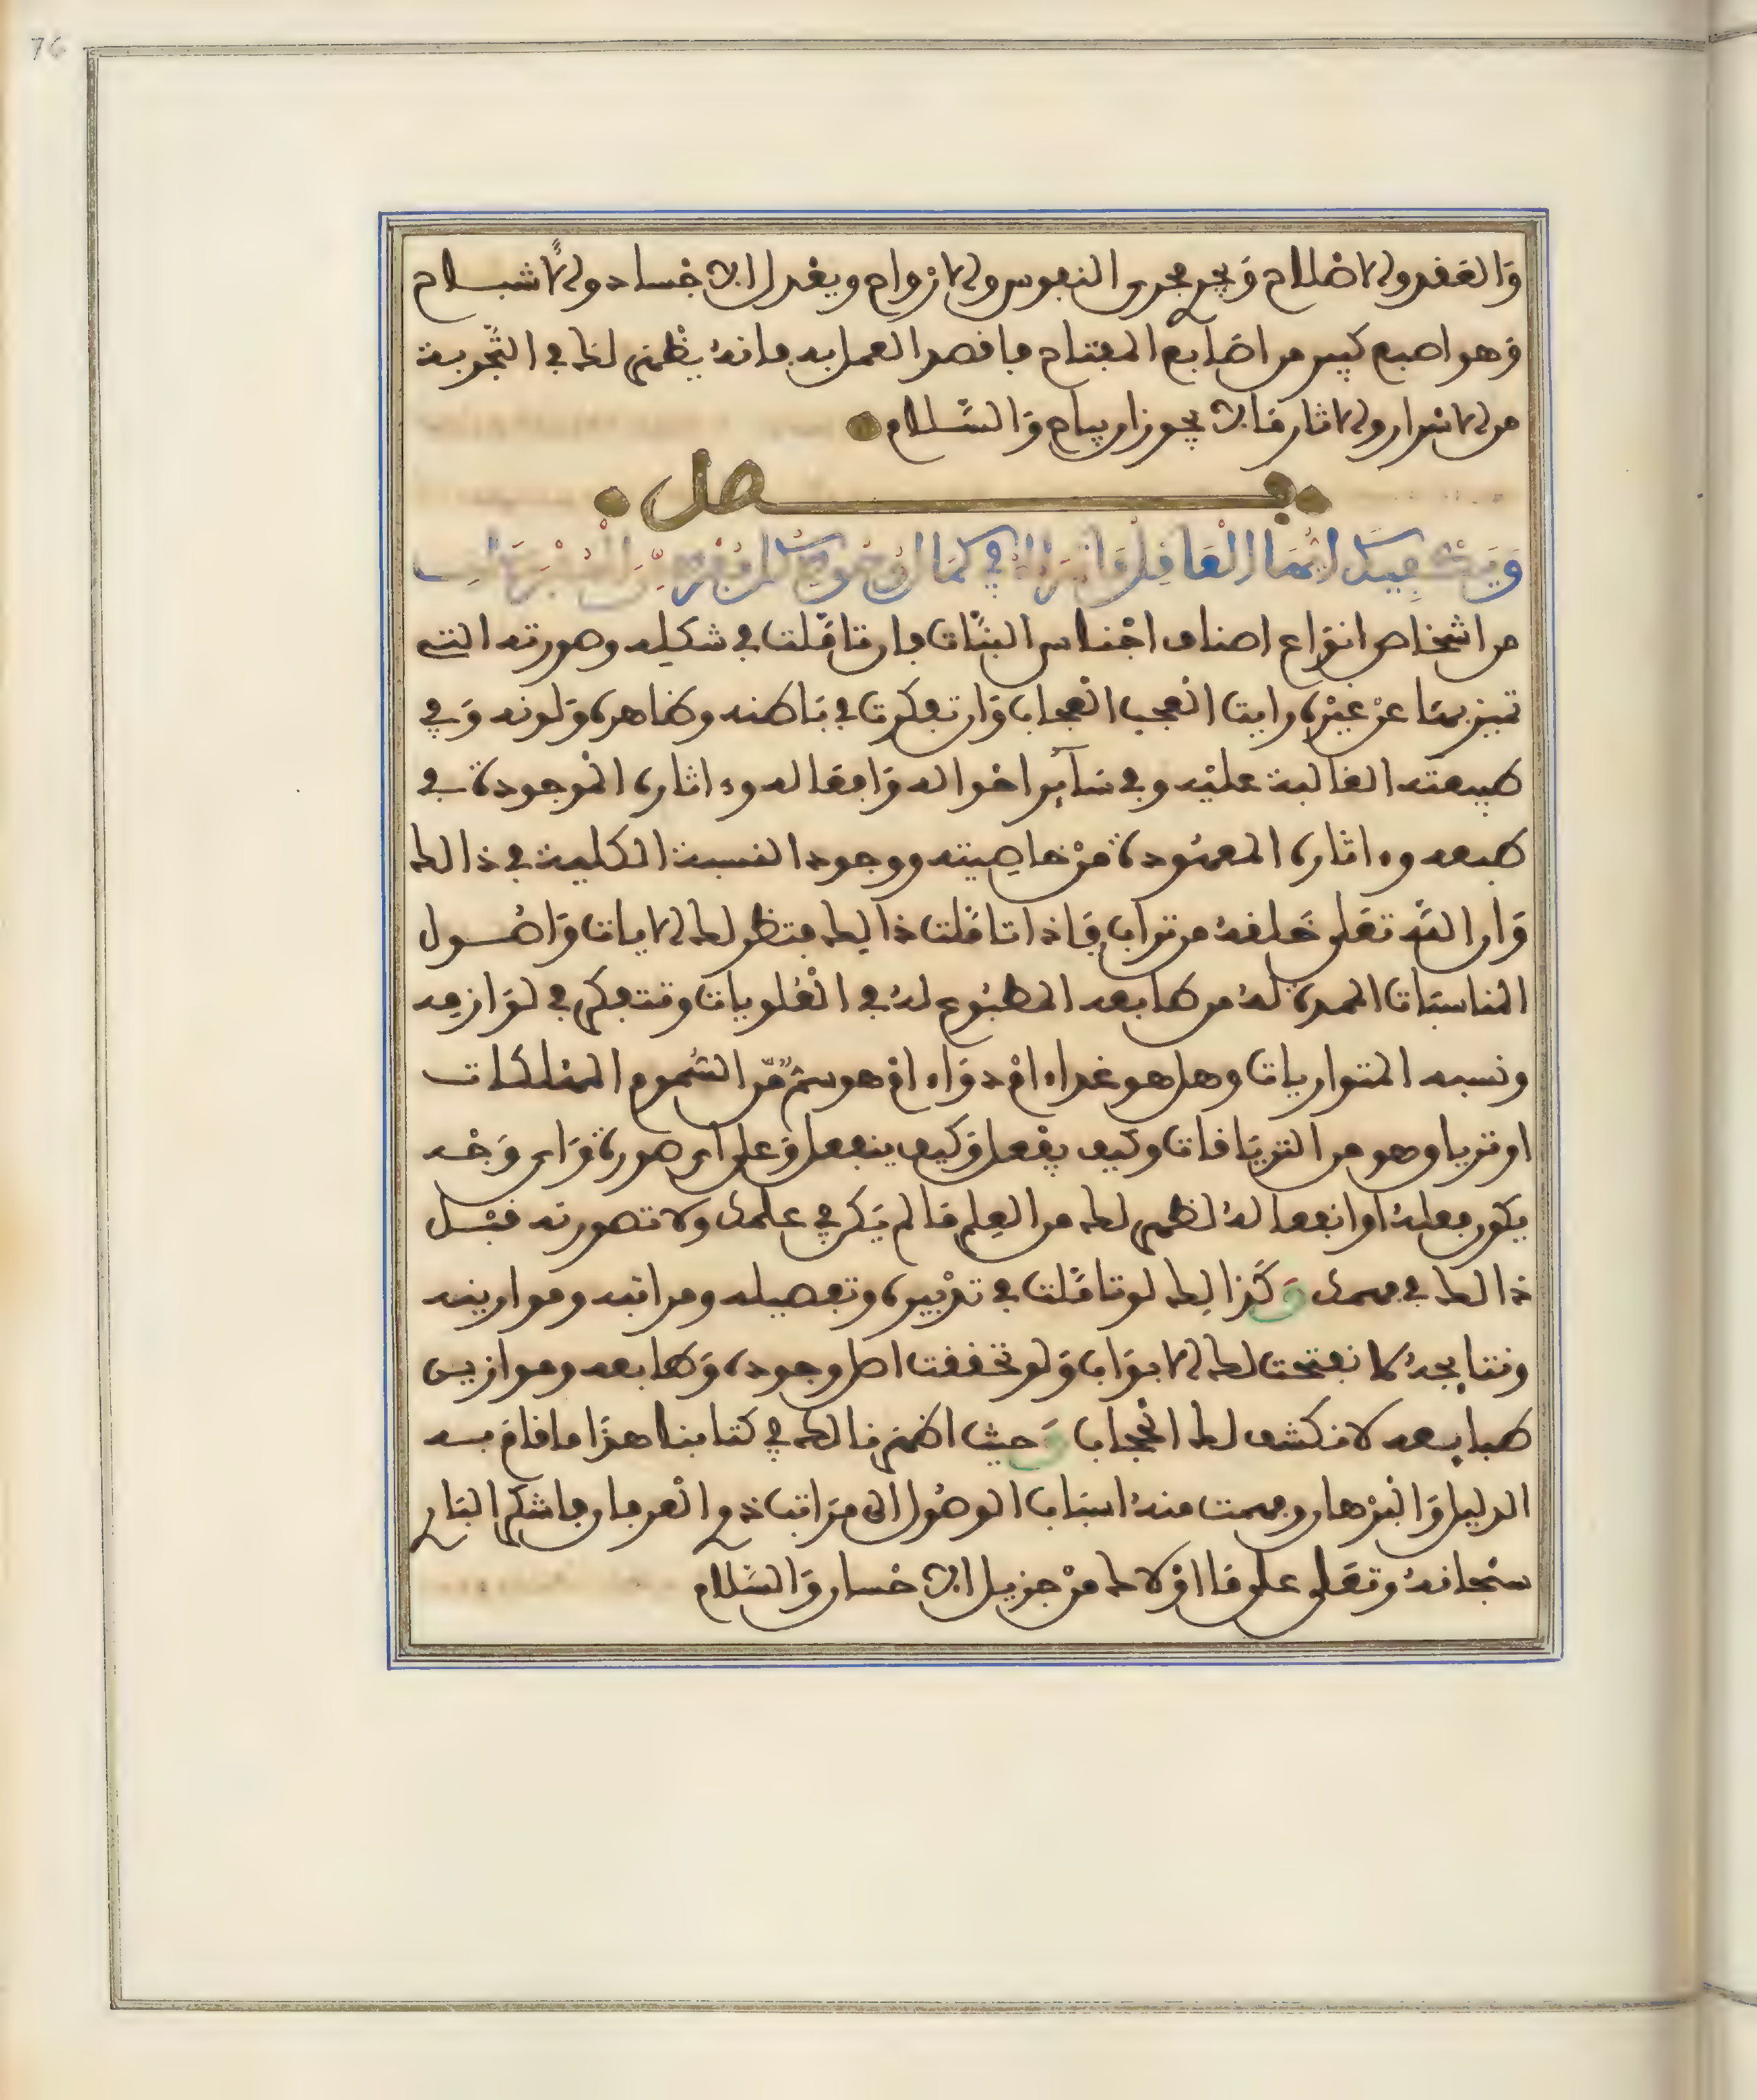 76
وَالعَقد والاصْلاح وَيجرى مجرى النفوس والارْواح ويغدل الاجْساد والاشباح
وَهو اصبع كبير من اصَابع المفتاح فاقصد العمل به فانهُ يظْهر لك في التّجربة
من الاسْرار والاثار مَا لا يجوز ان يباح وَالسَّلام
فصل
وَيَكْفِيكَ ايُّهَا العَاقِل
من اشخاص انوَاع اصناف اجْناس النبَّات فان تامَّلت في شكله وصورته التى
تميز بهَا عنْ غيْره رايت العجب العجاب وَان تفكرت في بَاطنه وظاهره وَلونه وَفي
طبيعته الغالبة عليْه وفي سَآئر احْواله وَافعَاله وءاثاره المْوجودة في
طبعه وءاثاره المعهُودة منْ خاصِيته ووجود النسبة الكلية في ذالك
وَان اللّه تعَلى خَلقهُ من تراب فَاذا تامَّلت ذالك فتظهر لك الايات وَاصُول
المناسبَات الممده لهُ من طابعه المطبُوع لهُ في العُلويات وتتفكر في لوَازمه
ونسبه المتواريات وهل هو غداء امْ دوَاء امْ هو سمٌّ مّن السُّموم المهلكات
او ترياق وهو من التريَاقات وكيف يفْعل وَكيف ينفعل وَعلى اى صورة وَاى وَجْه
يكون فعلهُ او انفعالهُ لظهر لك من العِلم مَا لم يَكن في علمك ولا تصورته قبْل
ذالك في فهمك وَكَذالِك لو تامَّلت في تدْبيره وتفصيله ومراتبه وموازينه
ونتايجهُ لانفتحت لك الابوَاب وَلو تحققت اصل وجوده وَطابعه وموازين
طبايعه لانكشف لك الحْجاب وَحيث اظهر ذالك في كتابنا هذَا ما قامَ به
الدليل وَالبرْهان وفهمت منهُ اسبَاب الوصُول الى مرَاتب ذوى العرفان فاشكر البَارى
سبْحانهُ وتعَلى على مَا اوْلاك منْ جزيل الاحْسان وَالسَّلام